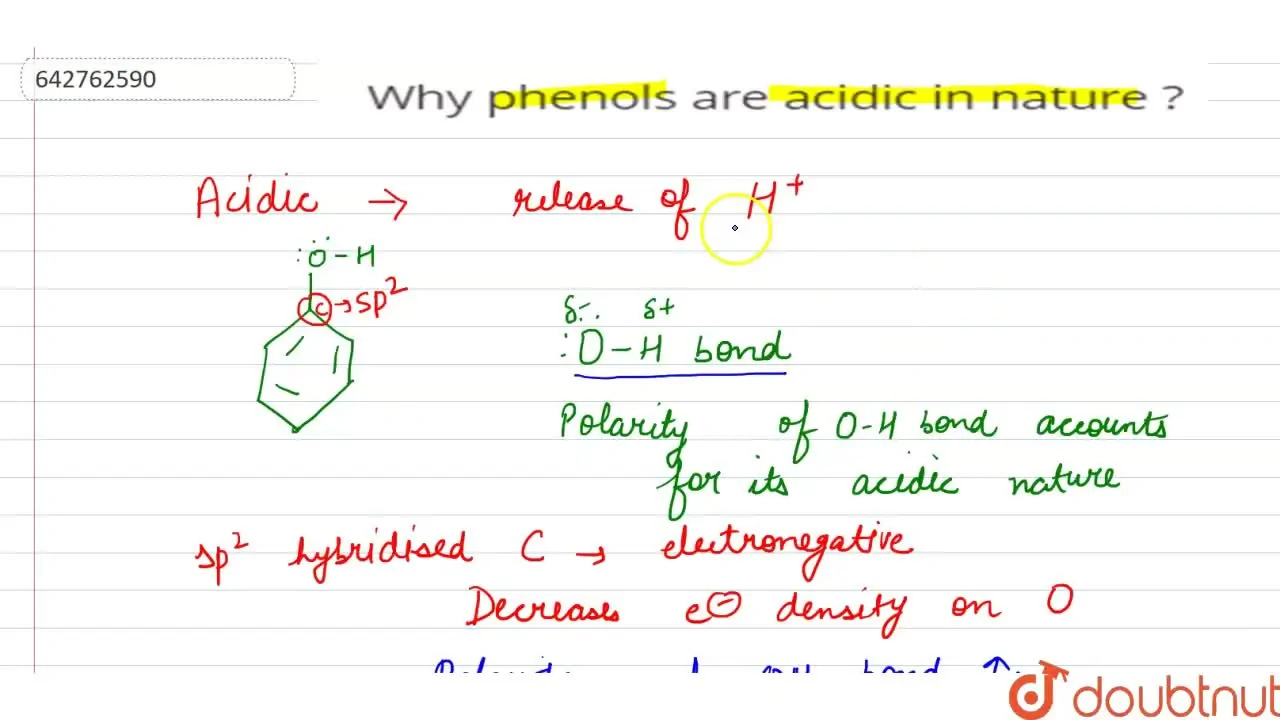 642762590
Why phenols are acidic in nature ?
Acidic → release of H⁺
:Ö-H
C → sp²
δ- δ+
:O-H bond
Polarity of O-H bond accounts
for its acidic nature
sp² hybridised C → electronegative
Decreases e⊖ density on O
bond ↑
doubtnut